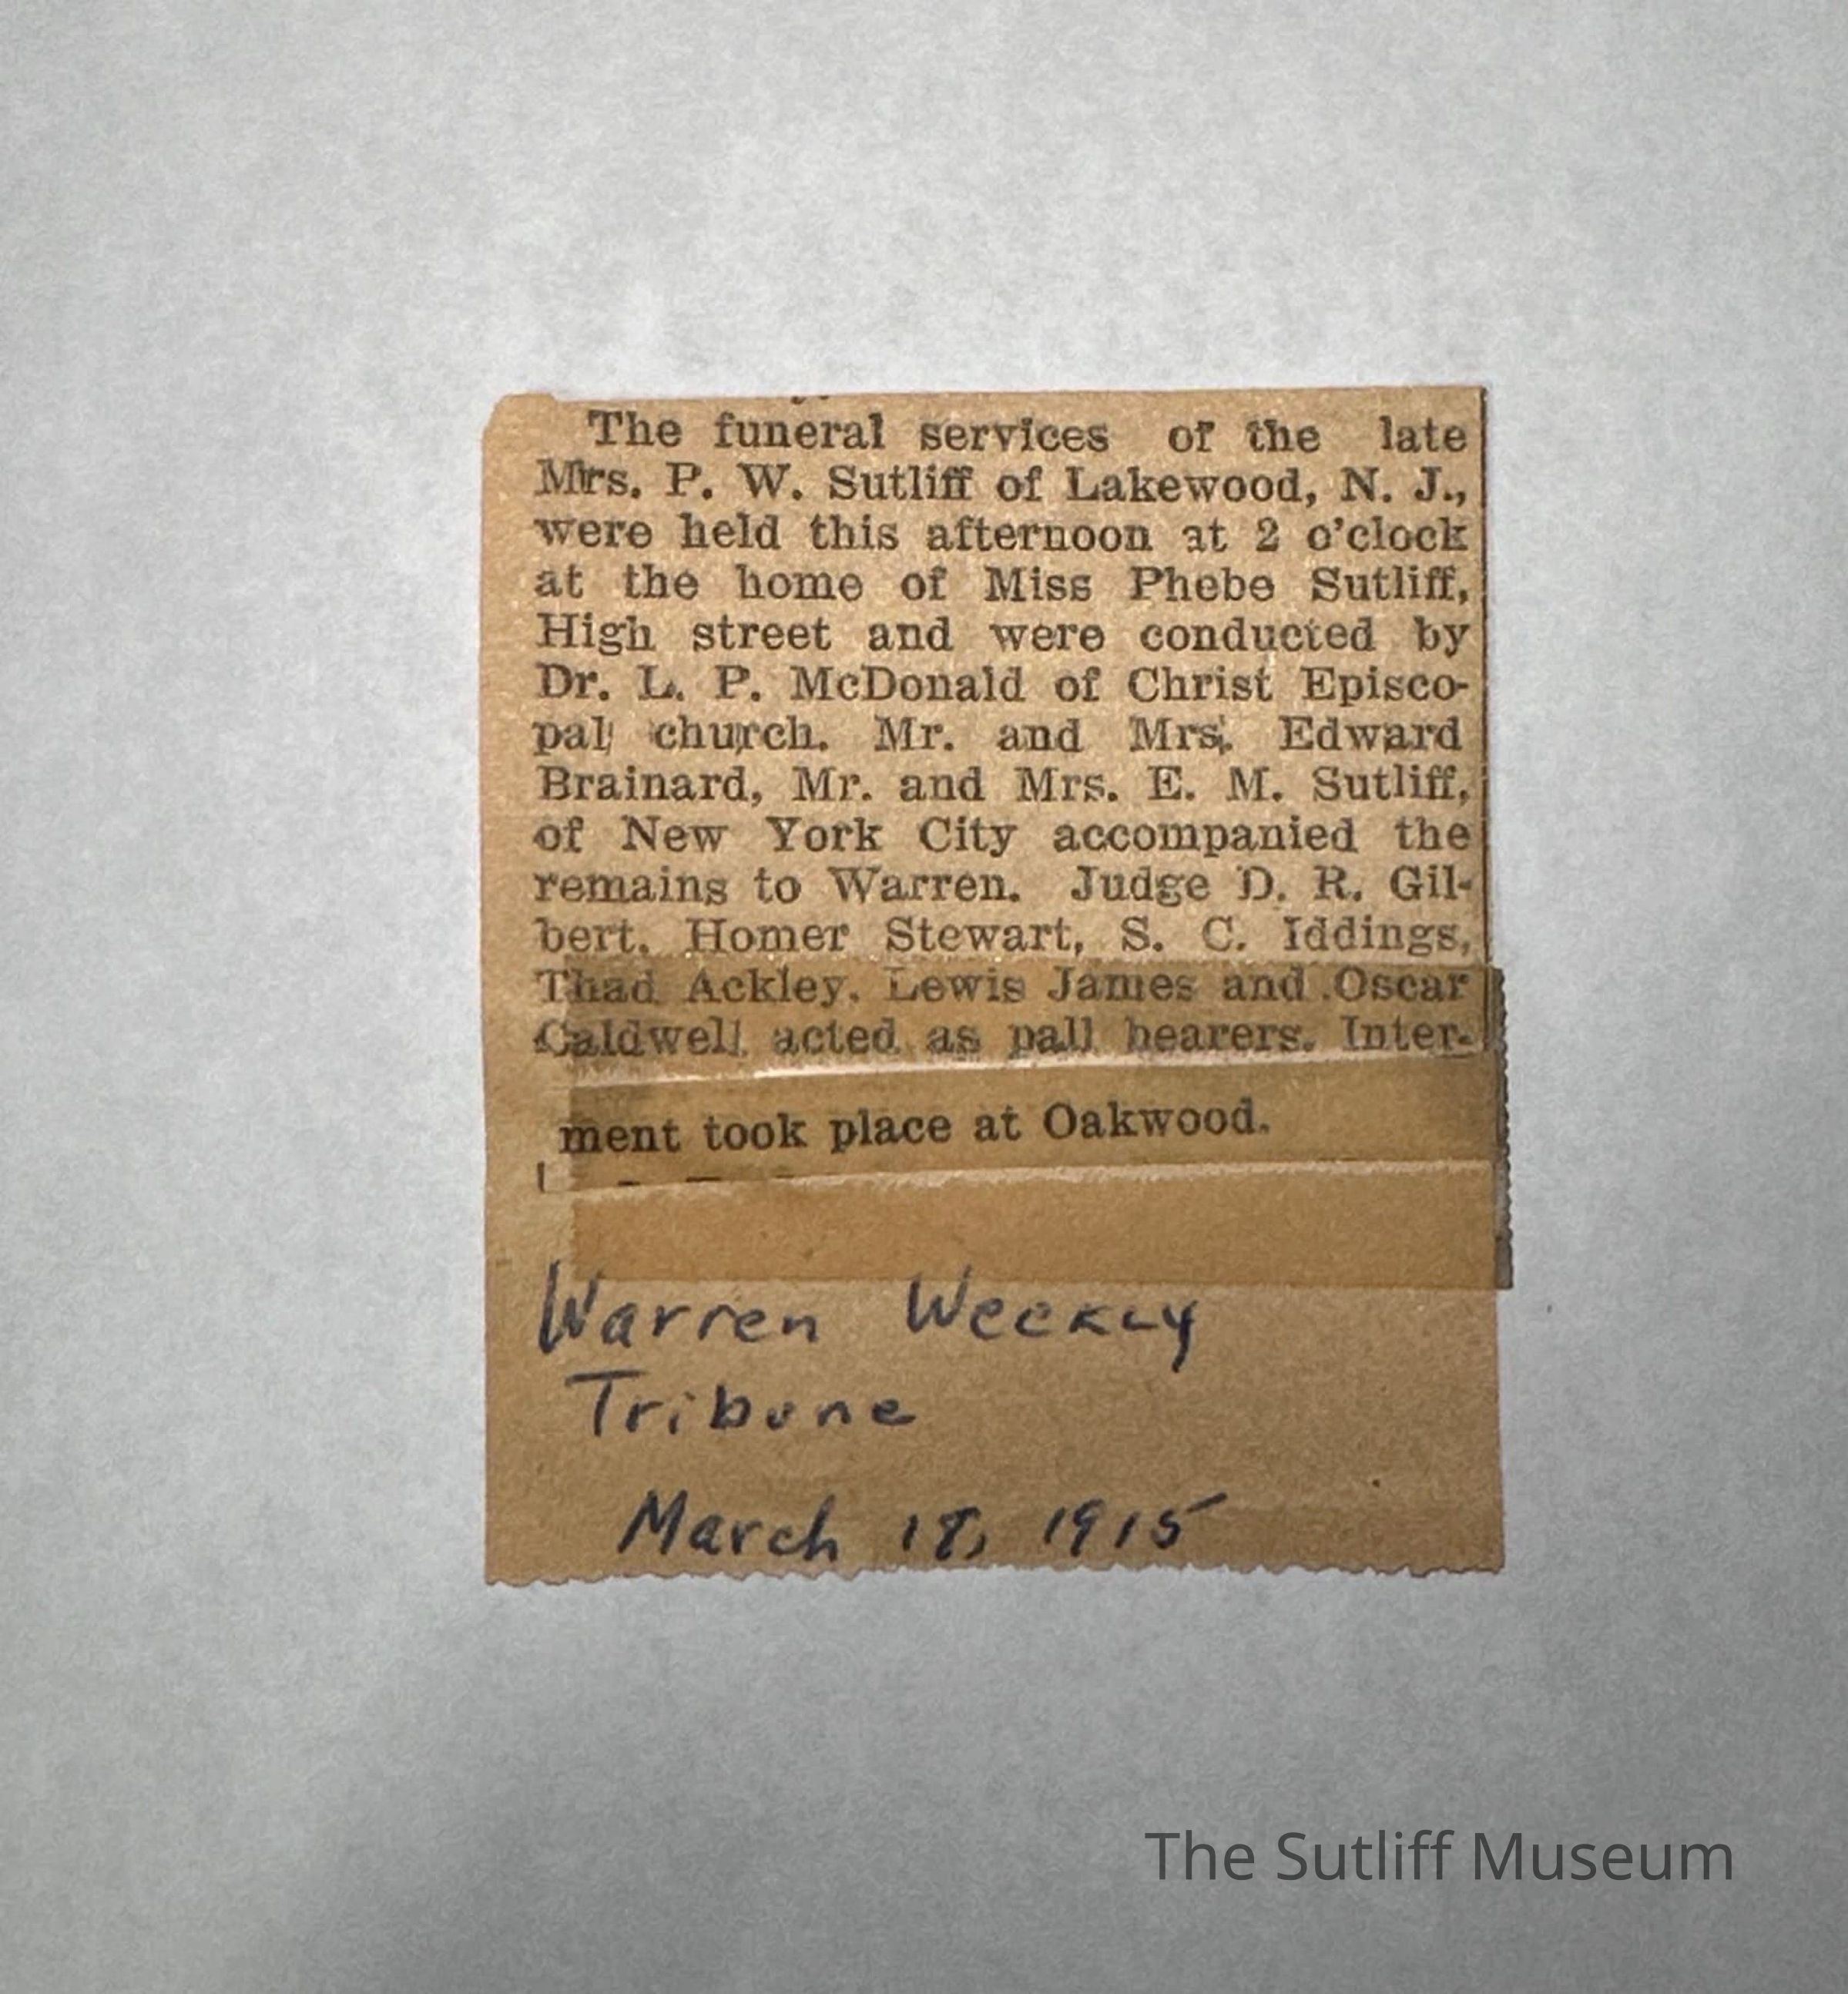 The funeral services of the late
Mrs. P. W. Sutliff of Lakewood, N. J.,
were held this afternoon at 2 o'clock
at the home of Miss Phebe Sutliff,
High street and were conducted by
Dr. L. P. McDonald of Christ Episco-
pal church. Mr. and Mrs. Edward
Brainard, Mr. and Mrs. E. M. Sutliff,
of New York City accompanied the
remains to Warren. Judge D. R. Gil-
bert, Homer Stewart, S. C. Iddings,
Thad Ackley, Lewis James and Oscar
Caldwell acted as pall bearers. Inter-
ment took place at Oakwood.
Warren Weekly
Tribune
March 18, 1915
The Sutliff Museum